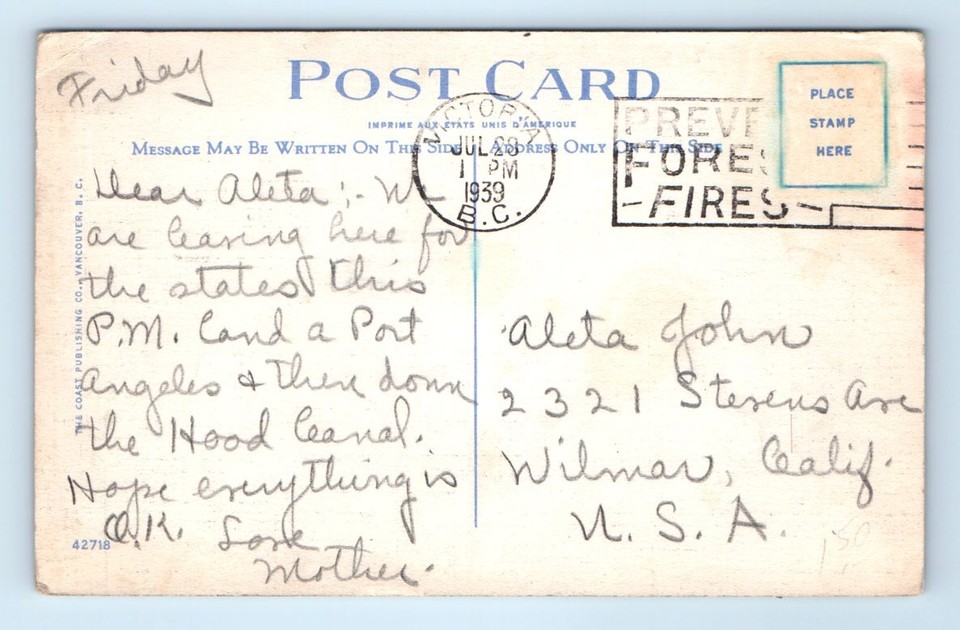 Friday
POST CARD
IMPRIME AUX ETATS UNIS D'AMERIQUE
MESSAGE MAY BE WRITTEN ON THIS SIDE
ADDRESS ONLY ON THIS SIDE
VICTORIA
JUL 28
1 PM
1939
B.C.
PREVE
FORES
-FIRES-
PLACE
STAMP
HERE
Dear Aleta:- We
are leaving here for
the states this
P.M. Land a Port
Angeles & then down
the Hood Canal.
Hope everything is
O.K. Love
Mother.
Aleta John
2321 Stevens Ave
Wilmar, Calif.
U. S. A.
THE COAST PUBLISHING CO., VANCOUVER, B. C.
42718